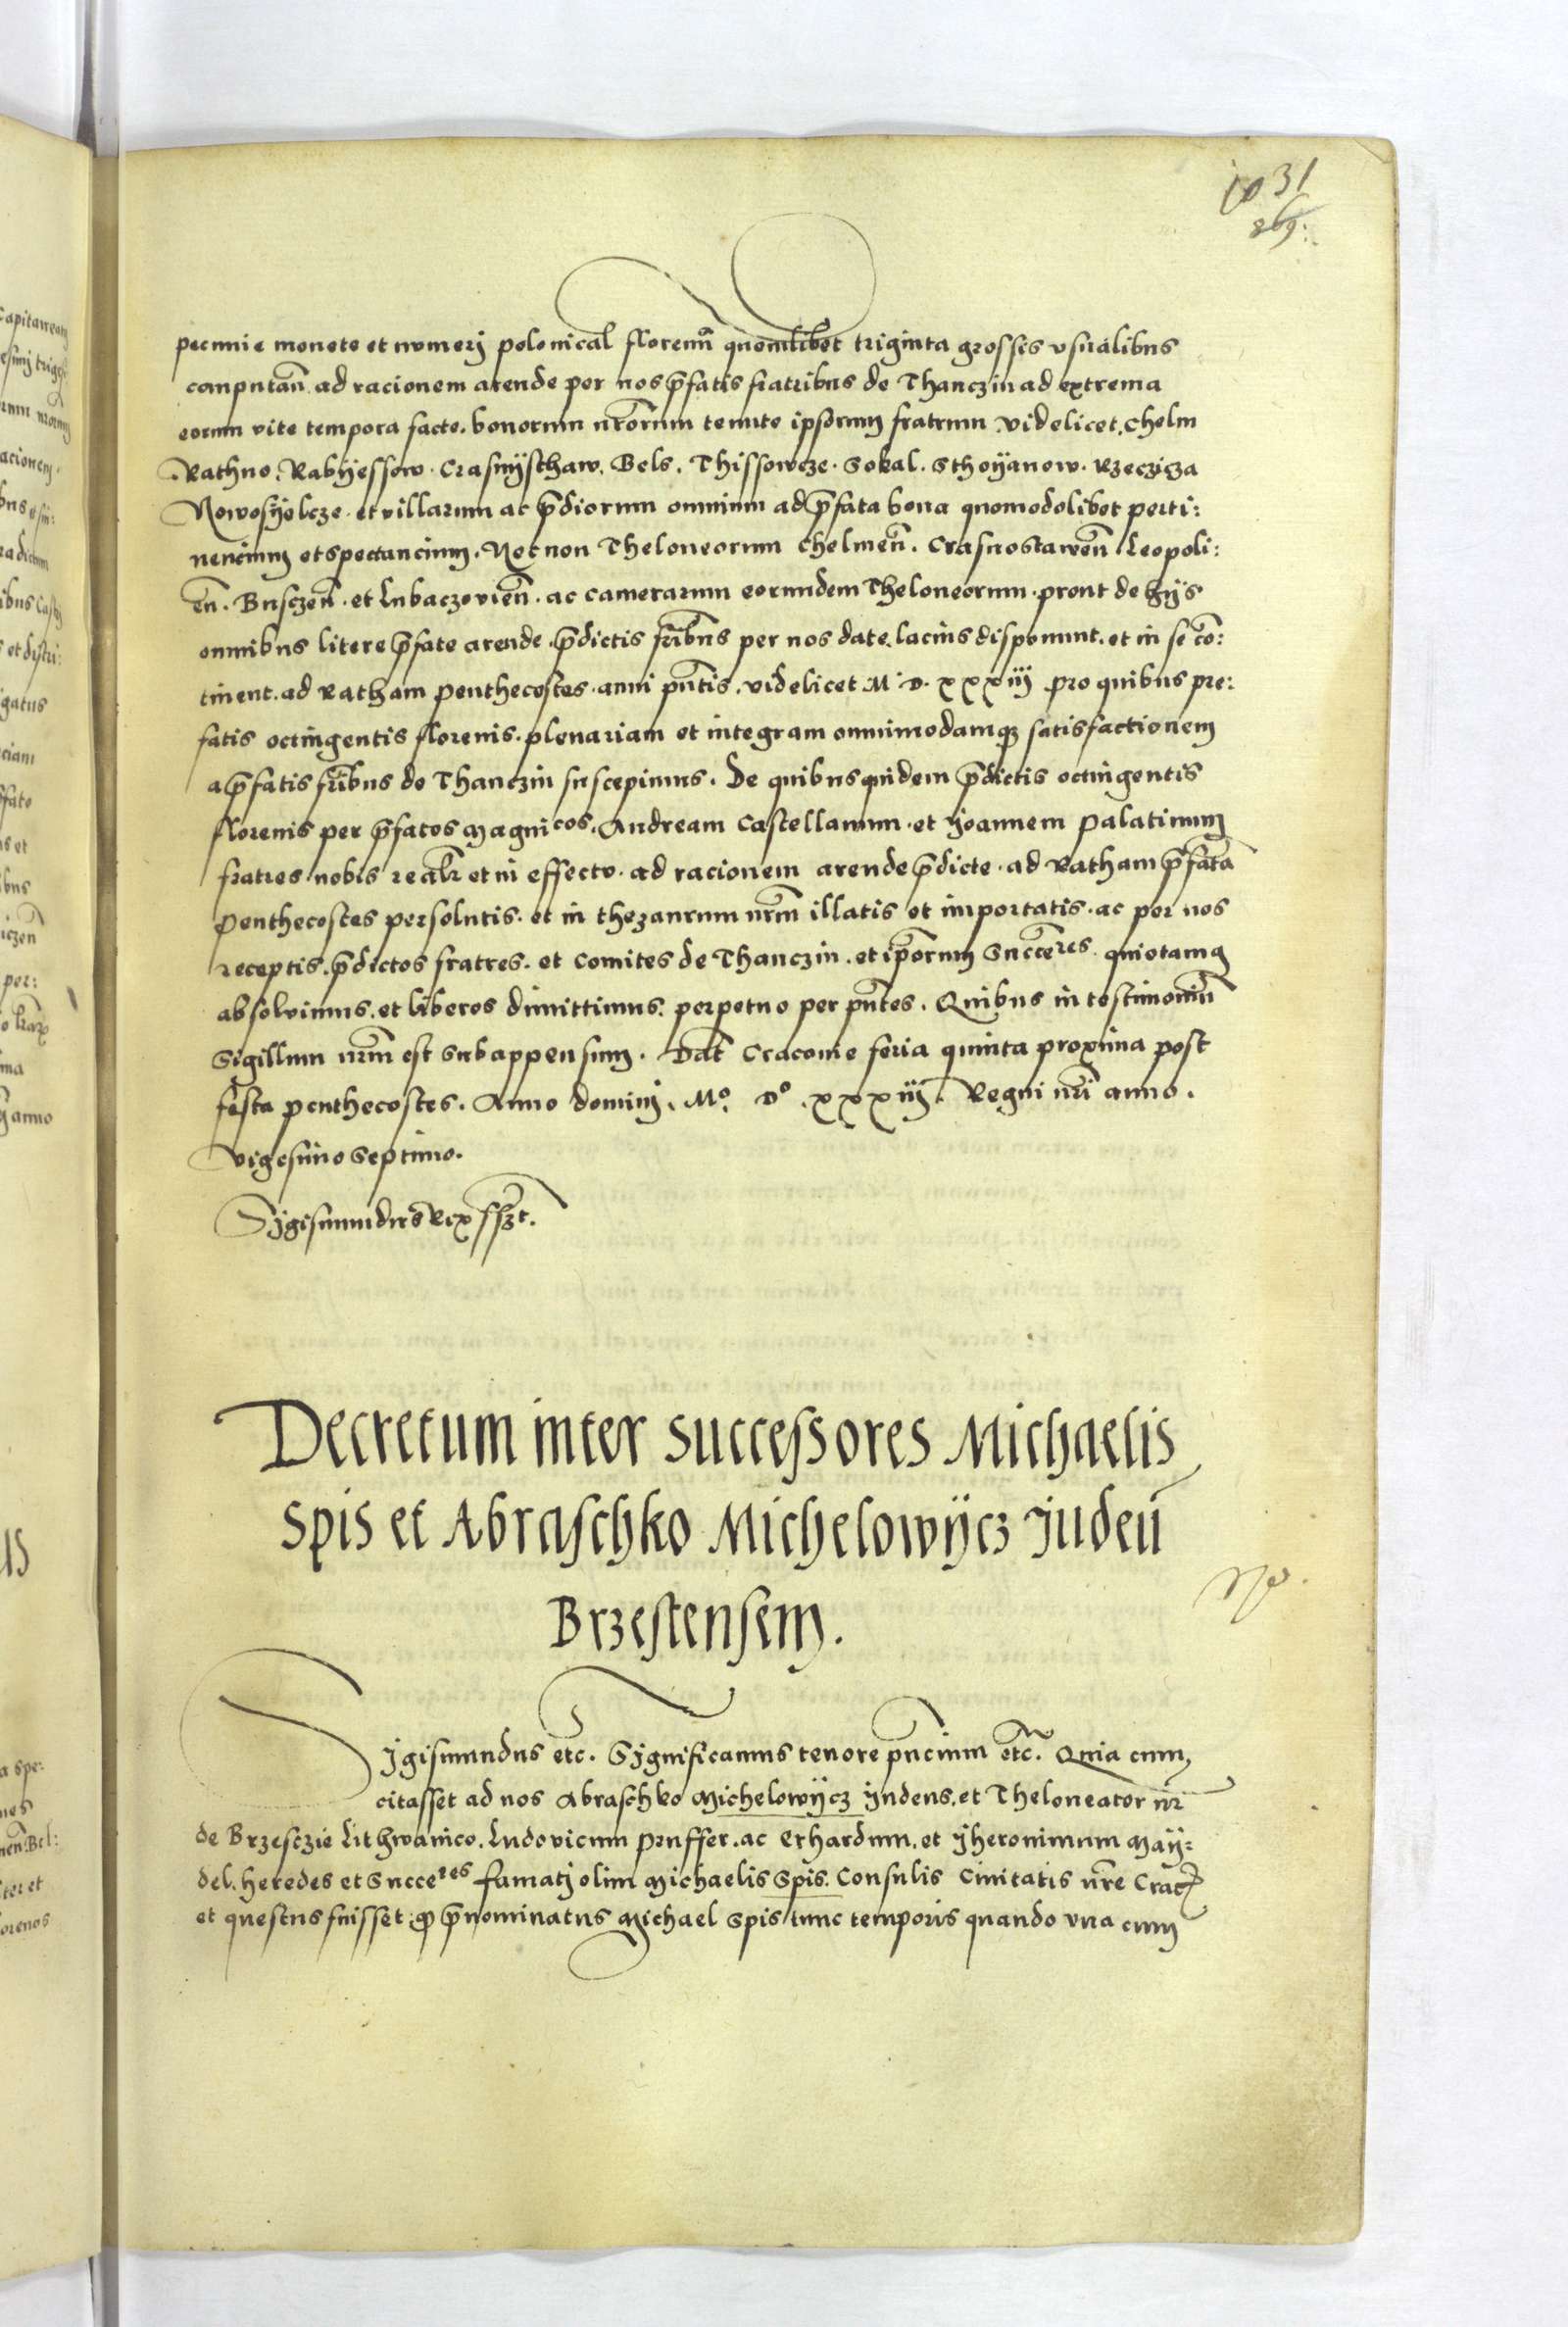 1031
269.
pecunie monete et numerj polonical florenũ quemlibet triginta grosses vsualibus
computañ ad racionem arende per nos p̃fatis fratribus de Thanczin ad extrema
eorum vite tempora facte. bonorum nrõrum tenute ipsorum fratrum videlicet. Chelm
Rathno. Rabyessow. Crasnÿsthaw. Bels. Thissowcze. Sokal. Sthoÿanow. Rzeczicza
Nowosÿelcze. et villarum ac p̃diorum omnium ad p̃fata bona quomodolibet perti:
nencium et spectancium. Nec non Theloneorum Chelmeñ. Crasnostawеñ Leopoli:
eñ. Busczeñ. et Lubaczovieñ. ac camerarum eorundem Theloneorum. prout de hijs
omnibus litere p̃fate arende. p̃dictis frĩbus per nos date. lacius disponunt. et in se cõ:
tinent. ad Ratham penthecostes. anni pñtis. videlicet M. D. xxxiij pro quibus pre:
fatis octingentis florenis. plenariam et integram omnimodamqȝ satisfactionem
a p̃fatis frĩbus de Thanczin suscepimus. De quibusquidem p̃dictis octingentis
florenis per p̃fatos Magnicos. Andream Castellanum. et Joannem palatinum
fratres. nobis realr̃ et in effectu. ad racionem arende p̃dicte. ad Ratham p̃fatã
penthecostes persolutis. et in thezaurum nrm̃ illatis et importatis. ac per nos
receptis. p̃dictos fratres. et Comites de Thanczin. et ip̃orum Succeres. quietamq
absolvimus. et liberos dimittimus. perpetuo per pñtes. Quibus in testimoniũ
Sigillum nrm̃ est subappensum. Dat̃ Cracovie feria quinta proxima post
festa penthecostes. Anno dominj. Mº. Dº. xxxiij. Regni nrĩ anno.
vigesimo septimo.
Sigismundus Rex sszt.
Decretum inter successores Michaelis
Spis et Abraschko Michelowÿcz Judeũ
Brzestensem.
Sigismundus etc̃. Significamus tenore pñcium etc̃. Quia cum
citasset ad nos Abraschko Michelowÿcz Judeus. et Theloneator nr̃
de Brzesczie Lithwanico. Ludovicum pruffer. ac Erhardum. et Jheronimum Maÿ:
del. heredes et Succeres famatj olim Michaelis Spis. Consulis Civitatis nrẽ Crac̃
et questus fuisset. ꝙ p̃nominatus Michael Spis tunc temporis quando vna cum